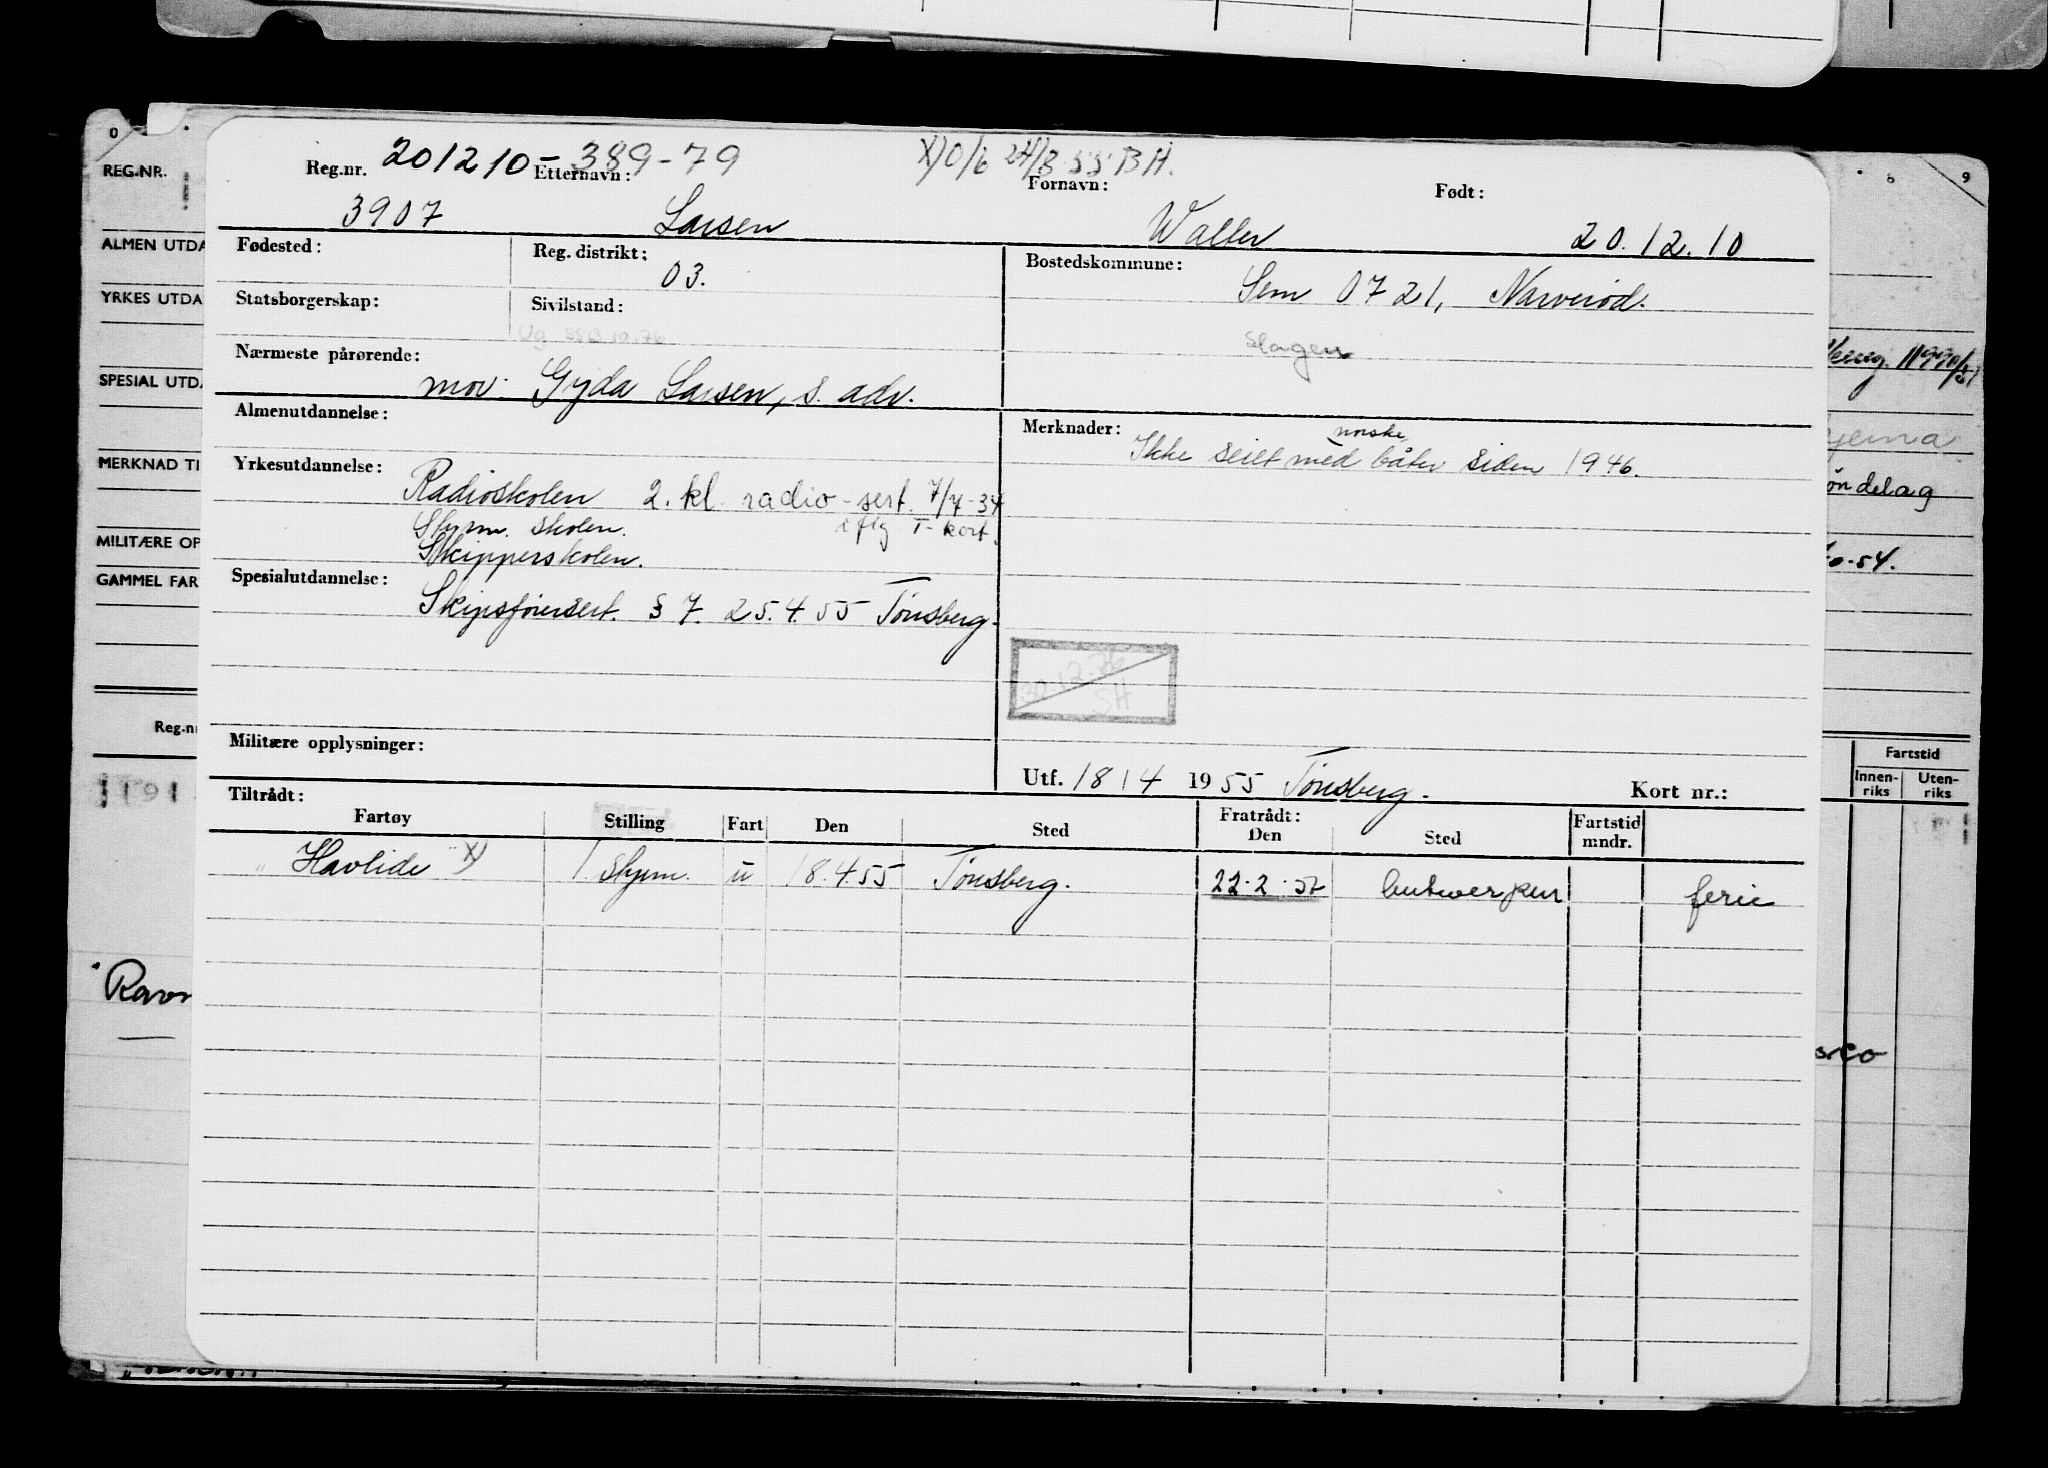 0
9
REG.NR.
ALMEN UTDA
YRKES UTDA
SPESIAL UTDA
MERKNAD TI
MILITÆRE OP
GAMMEL FAR
Reg.nr
Reg.nr. 201210-389-79 X) 0/6 24/8-55 BH.
3907
Etternavn: Larsen
Fornavn: Walter
Født: 20.12.10
Fødested:
Reg. distrikt: 03.
Bostedskommune: Sem 0721, Narverød.
Slagen
Statsborgerskap:
Sivilstand:
Ug. SSB 10.76
Nærmeste pårørende: mor: Gyda Larsen, s. adr.
Almenutdannelse:
Merknader: Ikke seilt med norske båter siden 1946.
Yrkesutdannelse: Radioskolen 2. kl. radio-sert. 7/4-34
Styrm. skolen. iflg T-kort.
Skipperskolen.
Spesialutdannelse: Skipsførersert. § 7. 25.4.55 Tønsberg.
30.12.76
SH
Militære opplysninger:
Utf. 18/4 1955 Tønsberg.
Kort nr.:
Tiltrådt:
Fratrådt:
Fartøy Stilling Fart Den Sted Den Sted Fartstid mndr.
" Havlide X) 1 styrm. u 18.4.55 Tønsberg. 22.2.57 Antwerpen ferie
øndelag
10-54.
Fartstid
Innen-riks
Uten-riks
Ravn